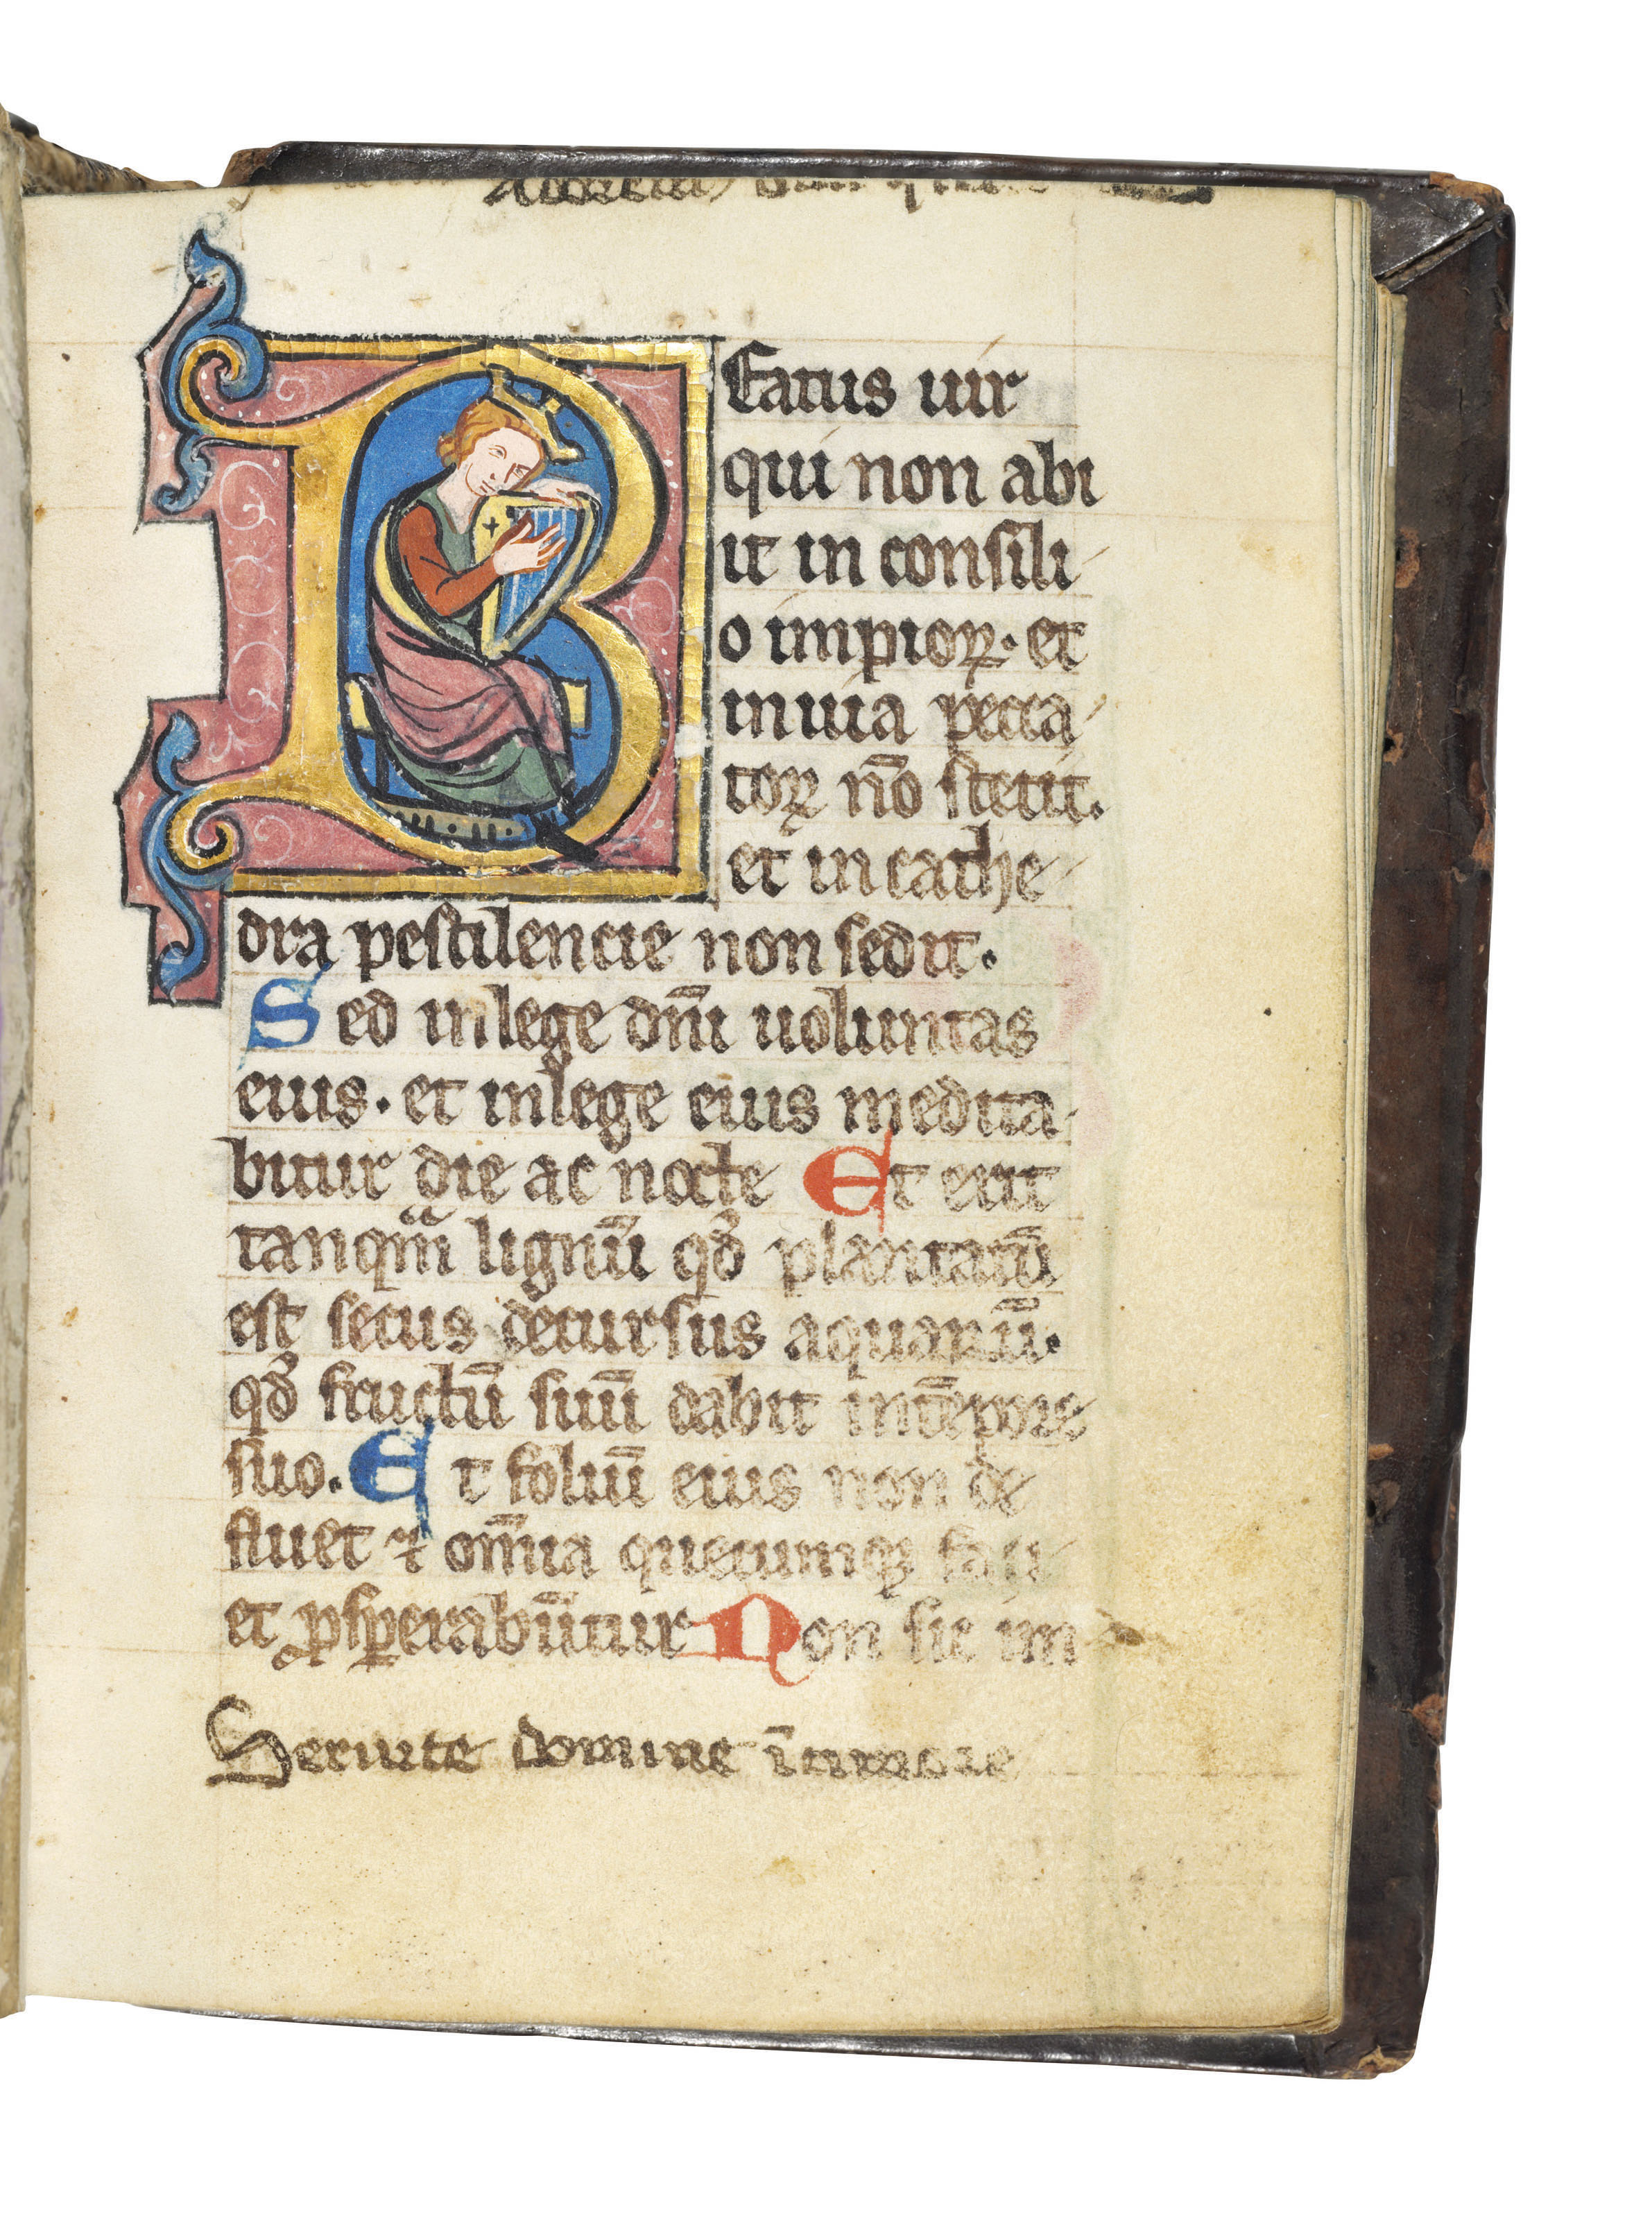 BEatus uir
qui non abi
it in consili
o impioꝝ. et
in uia pecca
toꝝ nō stetit.
et in cathe
dra pestilencie non sedit.
Sed in lege dn̄i uoluntas
eius. et in lege eius medita
bitur die ac nocte Et erit
tanqͣm lignū qd̓ plantatū
est secus decursus aquarū.
qd̓ fructū suū dabit in tēpore
suo. Et foliū eius non de
fluet ⁊ om̄ia quecumqꝫ faci
et ꝓsꝑerabūtur Non sic im
Seruite domine ī timore